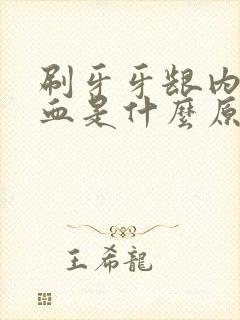 刷牙牙龈内
血是什麽原
王希龍